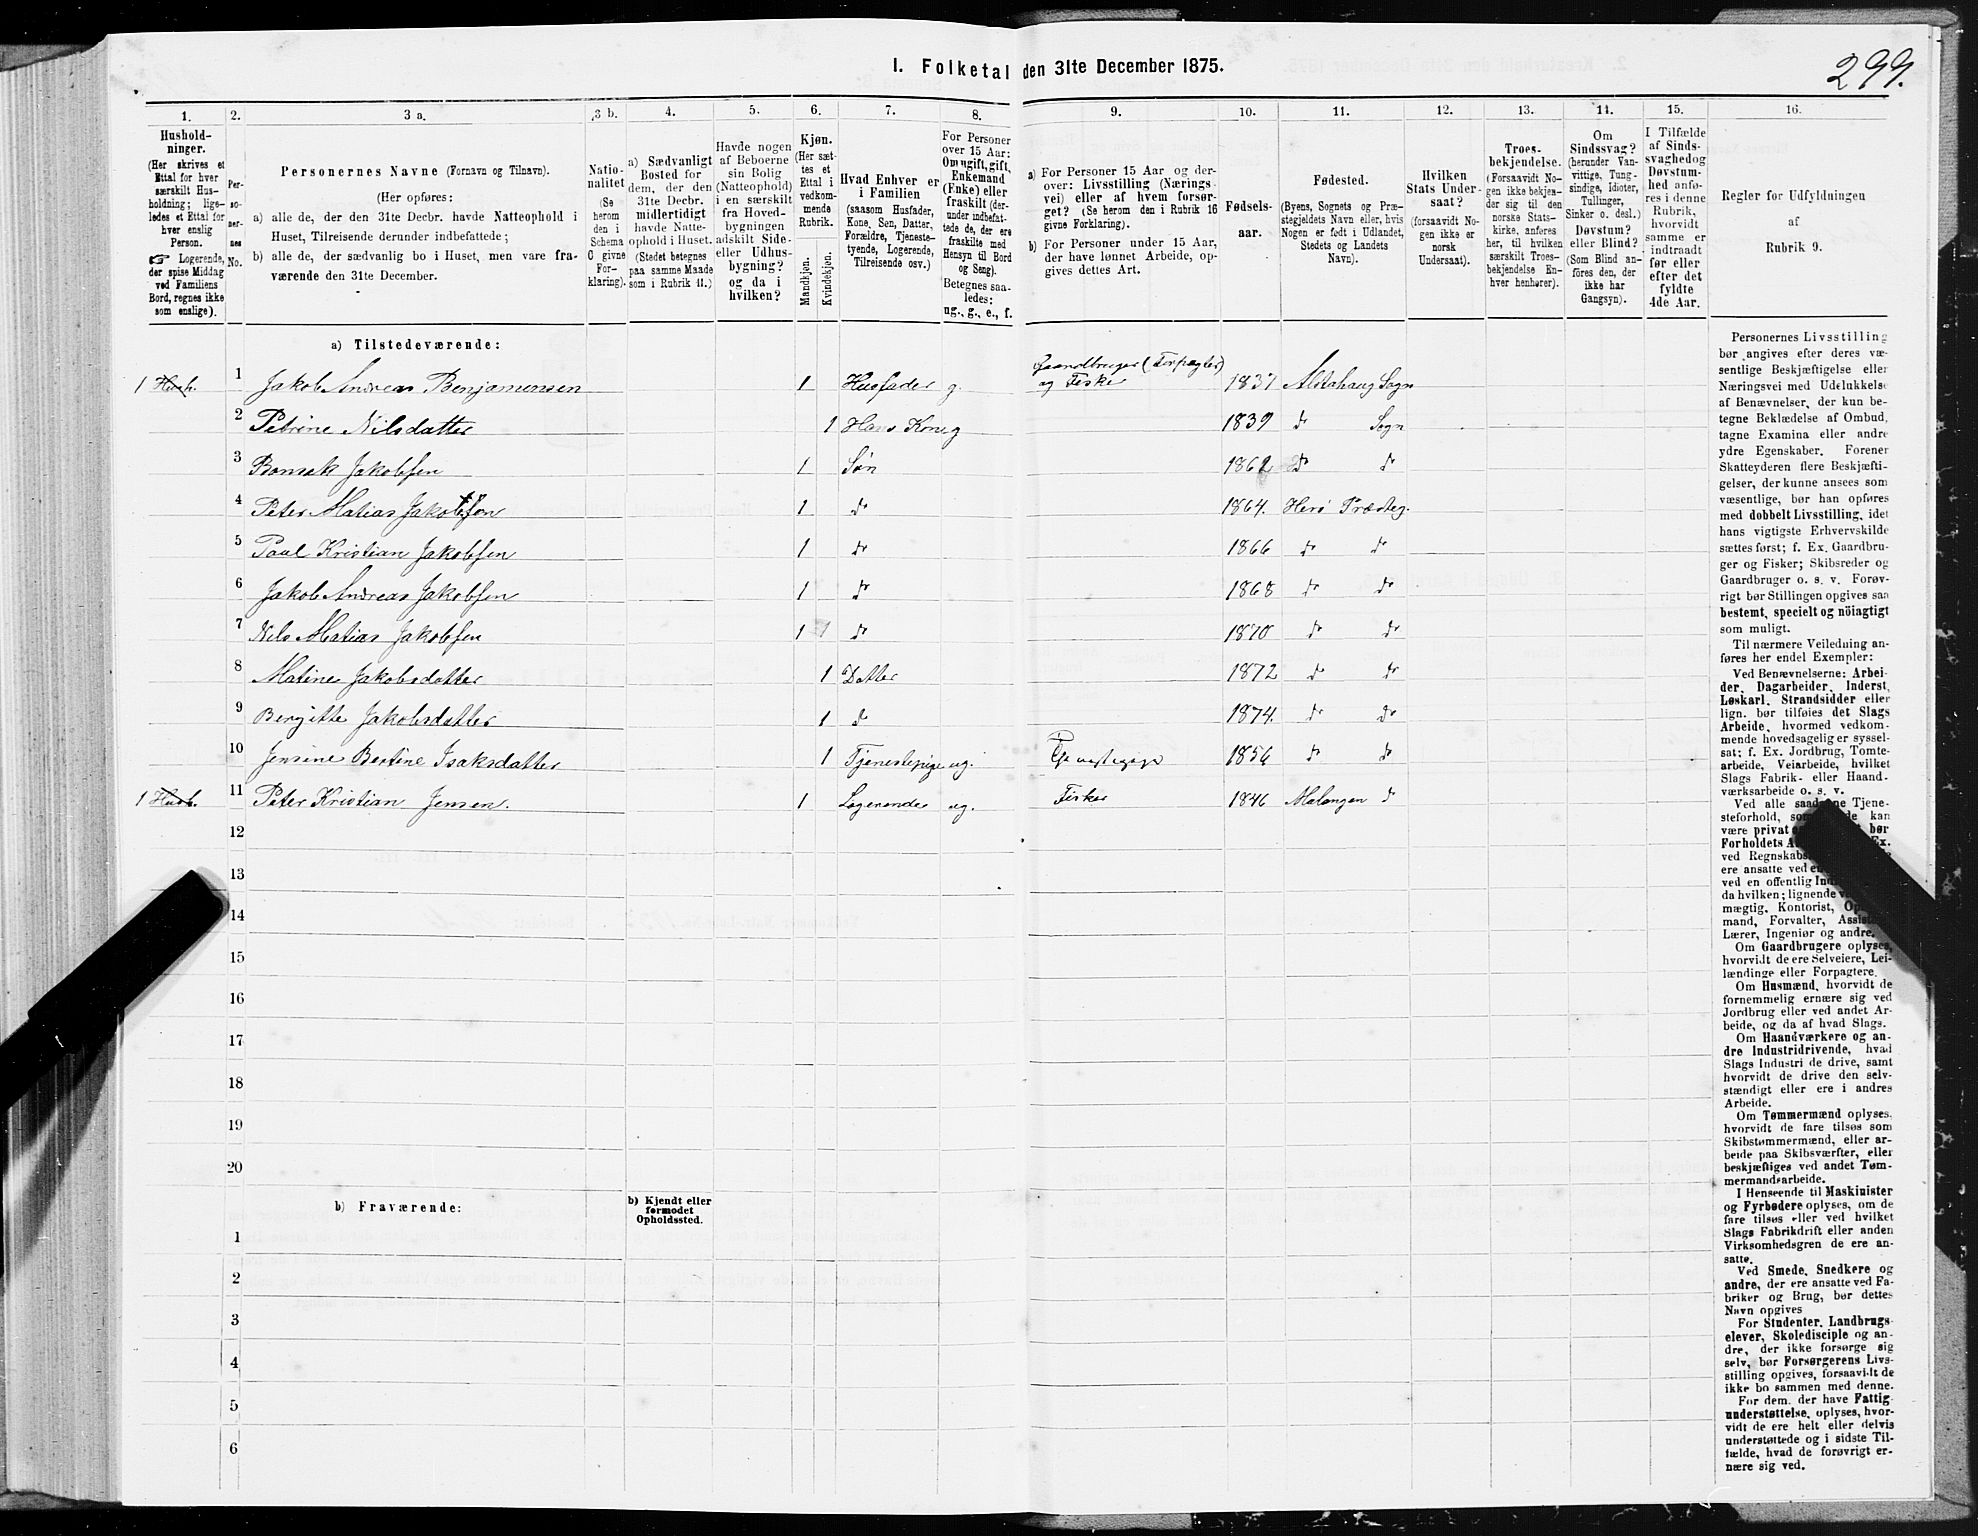 299.
I. Folketal den 31te December 1875.
1. 2. 3 a. 3 b. 4. 5. 6. 7. 8. 9. 10. 11. 12. 13. 14. 15. 16.
Husholdninger.
(Her skrives et
Ettal for hver
særskilt Husholdning; ligeledes et Ettal for
hver enslig
Person.
☞ Logerende,
der spise Middag
ved Familiens
Bord, regnes ikke
som enslige).
Personernes No.
Personernes Navne (Fornavn og Tilnavn).
(Her opføres:
a) alle de, der den 31te Decbr. havde Natteophold i
Huset, Tilreisende derunder indbefattede;
b) alle de, der sædvanlig bo i Huset, men vare fraværende den 31te December.
Nationalitet
(Se
herom
den i
Schema
C givne
Forklaring).
a) Sædvanligt
Bosted for
dem, der den
31te Decbr.
midlertidigt
havde Natteophold i Huset.
(Stedet betegnes
paa samme Maade
som i Rubrik 11.)
Havde nogen
af Beboerne
sin Bolig
(Natteophold)
i en særskilt
fra Hovedbygningen
adskilt Side-
eller Udhusbygning?
og da i
hvilken?
Kjøn.
(Her sættes et
Ettal i
vedkommende
Rubrik.
Mandkjøn.
Kvindekjøn.
Hvad Enhver er
i Familien
(saasom Husfader,
Kone, Søn, Datter,
Forældre, Tjenestetyende, Logerende,
Tilreisende osv.)
For Personer
over 15 Aar:
Om ugift, gift,
Enkemand
(Enke) eller
fraskilt (derunder indbefattede de, der ere
fraskilte med
Hensyn til Bord
og Seng).
Betegnes saaledes:
ug., g., e., f.
a) For Personer 15 Aar og derover: Livsstilling (Næringsvei) eller af hvem forsørget? (Se herom den i Rubrik 16
givne Forklaring).
b) For Personer under 15 Aar,
der have lønnet Arbeide, opgives dettes Art.
Fødselsaar.
Fødested.
(Byens, Sognets og Præstegjeldets Navn eller, hvis
Nogen er født i Udlandet,
Stedets og Landets
Navn).
Hvilken
Stats Undersaat?
(forsaavidt Nogen ikke er
norsk
Undersaat).
Troesbekjendelse.
(Forsaavidt Nogen ikke bekjender sig til den
norske Statskirke, anføres
her, til hvilken
særskilt Troesbekjendelse Enhver henhører).
Om
Sindssvag?
(herunder Vanvittige, Tungsindige, Idioter,
Tullinger,
Sinker o. desl.)
Døvstum?
eller Blind?
(Som Blind anføres den, der
ikke har
Gangsyn).
I Tilfælde
af Sindssvaghed og
Døvstumhed anføres i denne
Rubrik,
hvorvidt
samme er
indtraadt
før eller
efter det
fyldte
4de Aar.
Regler for Udfyldningen
af
Rubrik 9.
a) Tilstedeværende:
1 Husb. 1 Jakob Andreas Benjamensen 1 Husfader g. Gaardbruger (Forpagter) og Fisker 1837 Alstahaug Sogn
2 Petrine Nilsdatter 1 Hans Kone g 1839 do Sogn
3 Bonsak Jakobsen 1 Søn 1862 Do do
4 Peter Matias Jakobsen 1 do 1864. Herø Prædteg.
5 Paul Kristian Jakobsen 1 do 1866 do do
6 Jakob Andreas Jakobsen 1 do 1868 do do
7 Nils Matias Jakobsen 1 do 1870 do do
8 Matine Jakobsdatter 1 Datter 1872 do do
9 Bergitte Jakobsdatter 1 do 1874. do do
10 Jensine Bertine Isaksdatter 1 Tjenestepige ug. 1856 do do
1 Husb. 11 Peter Kristian Jensen. 1 Logerende ug. Fisker 1846 Malangen do
12
13
14
15
16
17
18
19
20
b) Fraværende:
b) Kjendt eller
formodet
Opholdssted.
1
2
3
4
5
6
Personernes Livsstilling
bør angives efter deres væsentlige Beskjæftigelse eller
Næringsvei med Udelukkelse
af Benævnelser, der kun betegne Beklædelse af Ombud,
tagne Examina eller andre
ydre Egenskaber. Forener
Skatteyderen flere Beskjæftigelser, der kunne ansees som
væsentlige, bør han opføres
med dobbelt Livsstilling, idet
hans vigtigste Erhvervskilde
sættes først; f. Ex. Gaardbruger og Fisker; Skibsreder og
Gaardbruger o. s. v. Forøvrigt bør Stillingen opgives saa
bestemt, specielt og nöiagtigt
som muligt.
Til nærmere Veiledning anføres her endel Exempler:
Ved Benævnelserne: Arbeider, Dagarbeider, Inderst,
Løskarl, Strandsidder eller
lign. bør tilføies det Slags
Arbeide, hvormed vedkommende hovedsagelig er sysselsat; f. Ex. Jordbrug, Tomtearbeide, Veiarbeide, hvilket
Slags Fabrik- eller Haandværksarbeide o. s. v.
Ved alle Tjenesteforhold, kan
være privat bør
Forholdets Ex.
ved Regnskabs
ere ansatte ved
ved en offentlig
da hvilken; lignende
mægtig, Kontorist,
mand, Forvalter,
Lærer, Ingeniør og andre.
Om Gaardbrugere oplyses,
hvorvidt de ere Selveiere, Leilændinge eller Forpagtere.
Om Husmænd, hvorvidt de
fornemmelig ernære sig ved
Jordbrug eller ved andet Arbeide, og da af hvad Slags.
Om Haandværkere og andre Industridrivende, hvad
Slags Industri de drive, samt
hvorvidt de drive den selvstændigt eller ere i andres
Arbeide.
Om Tømmermænd oplyses,
hvorvidt de fare tilsøs som
Skibstømmermænd, eller arbeide paa Skibsværfter, eller
beskjæftiges ved andet Tømmermandsarbeide.
I Henseende til Maskinister
og Fyrbødere oplyses, om de
fare tilsøs eller ved hvilket
Slags Fabrikdrift eller anden
Virksomhedsgren de ere ansatte.
Ved Smede, Snedkere og
andre, der ere ansatte ved Fabriker og Brug, bør dettes
Navn opgives
For Studenter, Landbrugselever, Skoledisciple og andre, der ikke forsørge sig
selv, bør Forsørgerens Livsstilling opgives, forsaavidt de
ikke bo sammen med denne.
For dem, der have Fattigunderstøttelse, oplyses, hvorvidt de ere helt eller delvis
understøttede og i sidste Tilfælde, hvad de forøvrigt ernære sig ved.